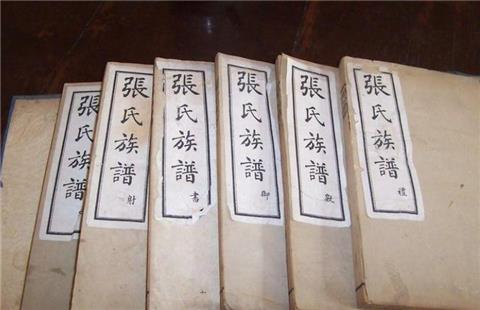 張氏族譜
張氏族譜 射
張氏族譜 書
張氏族譜 御
張氏族譜
張氏族譜 禮